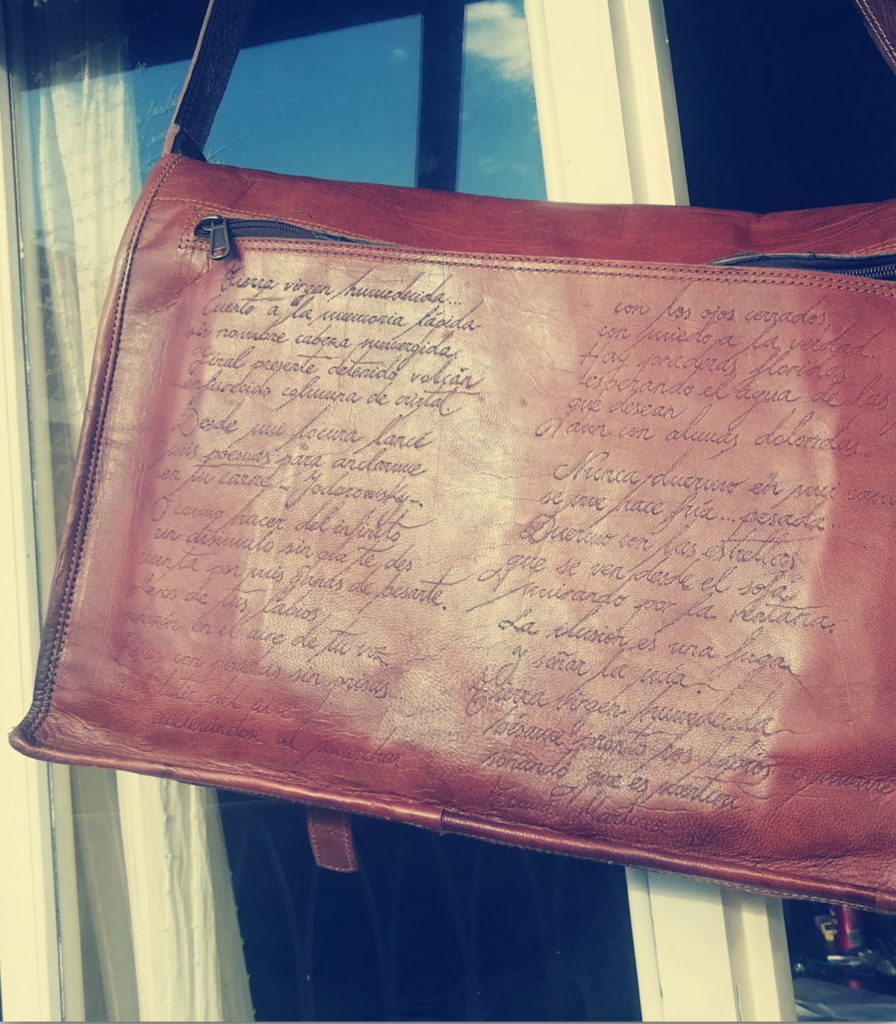 Tierra virgen humedecida...
Cuerto a la memoria lápida
sin nombre cabeza sumergida.
Final presente detenido volcán
enfurecido columna de cristal
Desde mi locura lancé
mis poemas para anclarme
en tu carne - Jodorowsky -
O como hacer del infinito
un disimulo sin que te des
cuenta por mis ganas de besarte.
de tus labios
en el aire de tu voz
con sin prisas...
del aire
al
con los ojos cerrados,
con miedo a la verdad.
Hay praderas floridas
esperando el agua de
que desean
Aun con almas doloridas.
Nunca duermo en mi
se me hace fría... pesada...
Duermo con las estrellas
que se ven desde el sofá
mirando por la ventana.
La ilusión es una fuga
y soñar la mía.
Tierra virgen humedecida
bésame pronto los labios o
soñando que es mentira